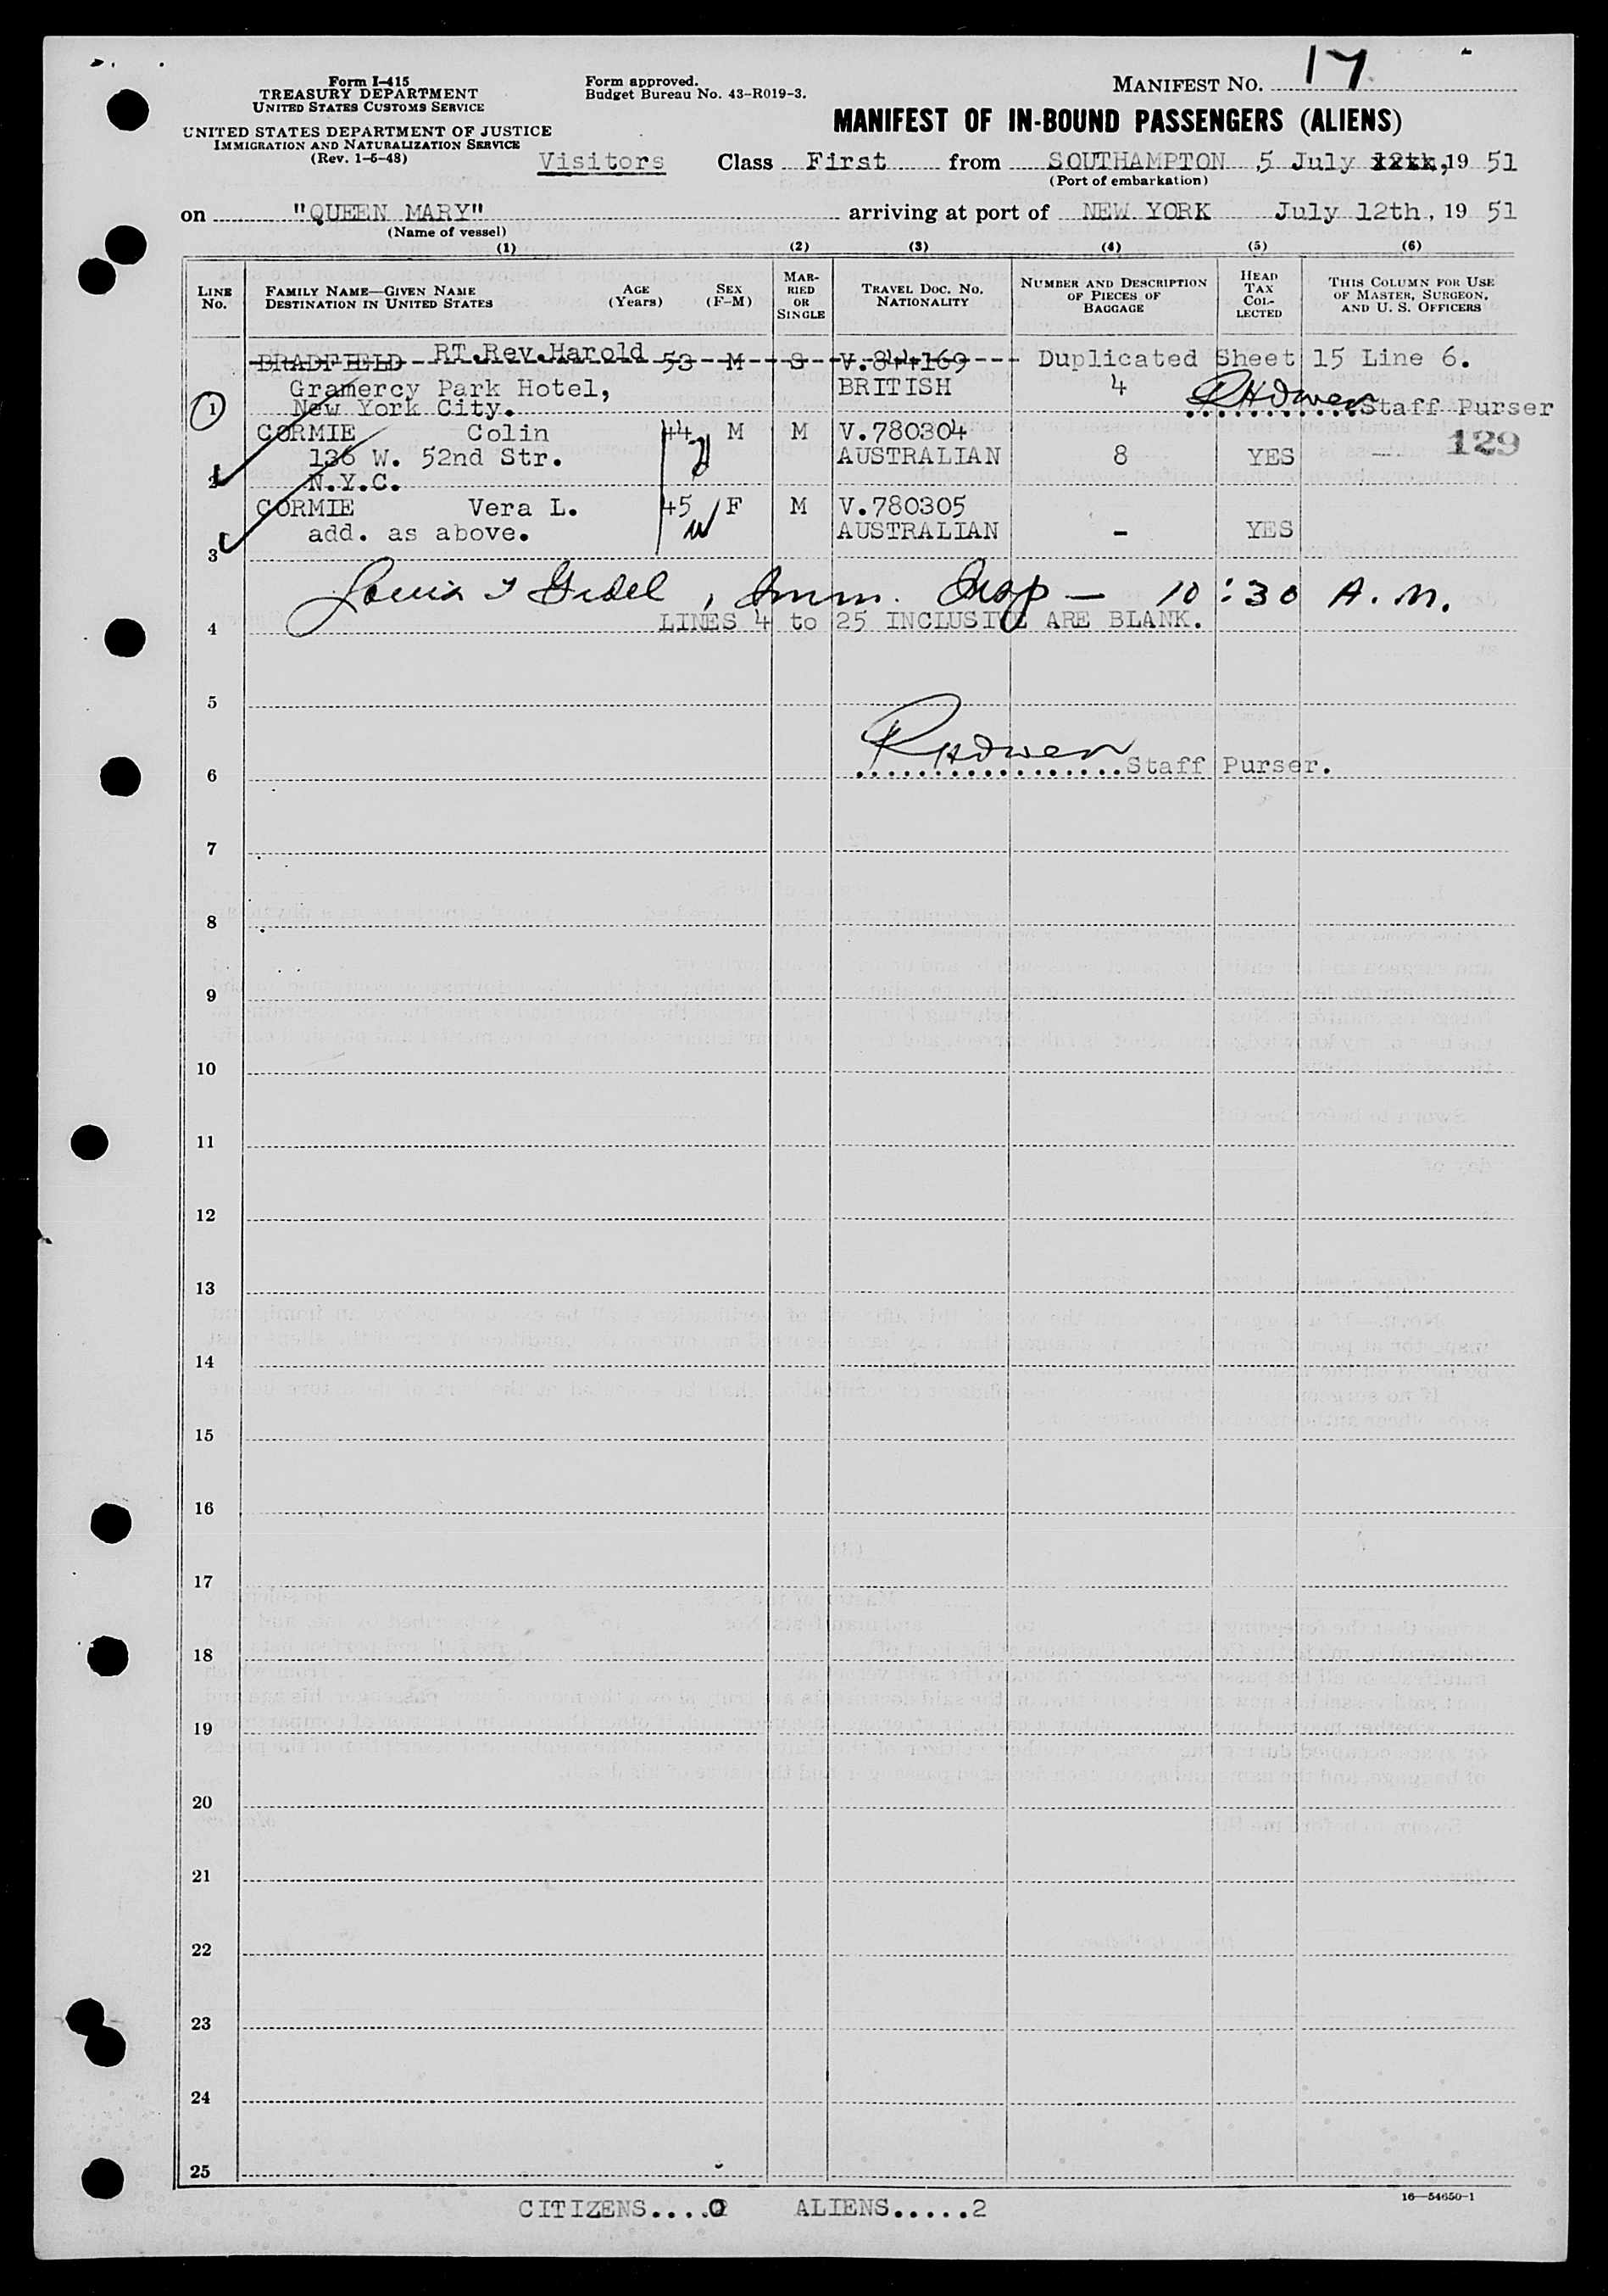 Form I-415
TREASURY DEPARTMENT
UNITED STATES CUSTOMS SERVICE
UNITED STATES DEPARTMENT OF JUSTICE
IMMIGRATION AND NATURALIZATION SERVICE
(Rev. 1-6-48)
Form approved.
Budget Bureau No. 43-R019-3.
MANIFEST NO. 17
MANIFEST OF IN-BOUND PASSENGERS (ALIENS)
Visitors Class First from SOUTHAMPTON, 5 July 12th, 19 51
(Port of embarkation)
on "QUEEN MARY" arriving at port of NEW YORK July 12th, 19 51
(Name of vessel)
(1) (2) (3) (4) (5) (6)
LINE No.
FAMILY NAME—GIVEN NAME
DESTINATION IN UNITED STATES
AGE (Years)
SEX (F-M)
MARRIED OR SINGLE
TRAVEL DOC. NO. NATIONALITY
NUMBER AND DESCRIPTION OF PIECES OF BAGGAGE
HEAD TAX COLLECTED
THIS COLUMN FOR USE OF MASTER, SURGEON, AND U. S. OFFICERS
BRADFIELD RT.Rev.Harold 53 M S V.844169 Duplicated Sheet 15 Line 6.
Gramercy Park Hotel, BRITISH 4
1 New York City. Staff Purser
CORMIE Colin 44 M M V.780304 129
136 W. 52nd Str. AUSTRALIAN 8 YES
2 N.Y.C.
CORMIE Vera L. 45 F M V.780305
add. as above. AUSTRALIAN - YES
3
Imm. Insp — 10:30 A.M.
4 LINES 4 to 25 INCLUSIVE ARE BLANK.
5
6 Staff Purser.
7
8
9
10
11
12
13
14
15
16
17
18
19
20
21
22
23
24
25
CITIZENS....0 ALIENS.....2
16—54650-1